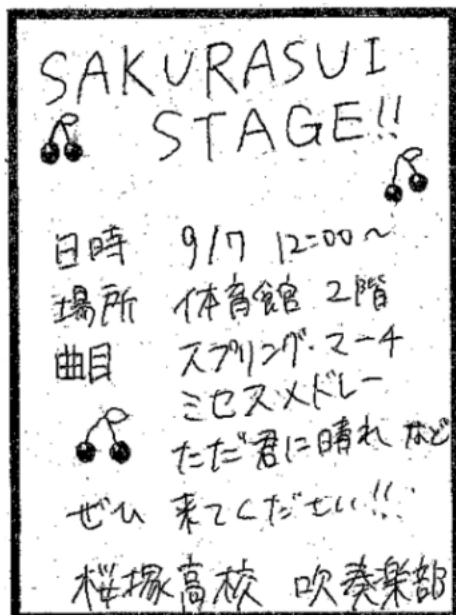 SAKURASUI
STAGE!!
日時 9/7 12:00~
場所 体育館 2階
曲目 スプリング・マーチ
ミセスメドレー
ただ君に晴れ など
ぜひ 来てください!!
桜塚高校 吹奏楽部